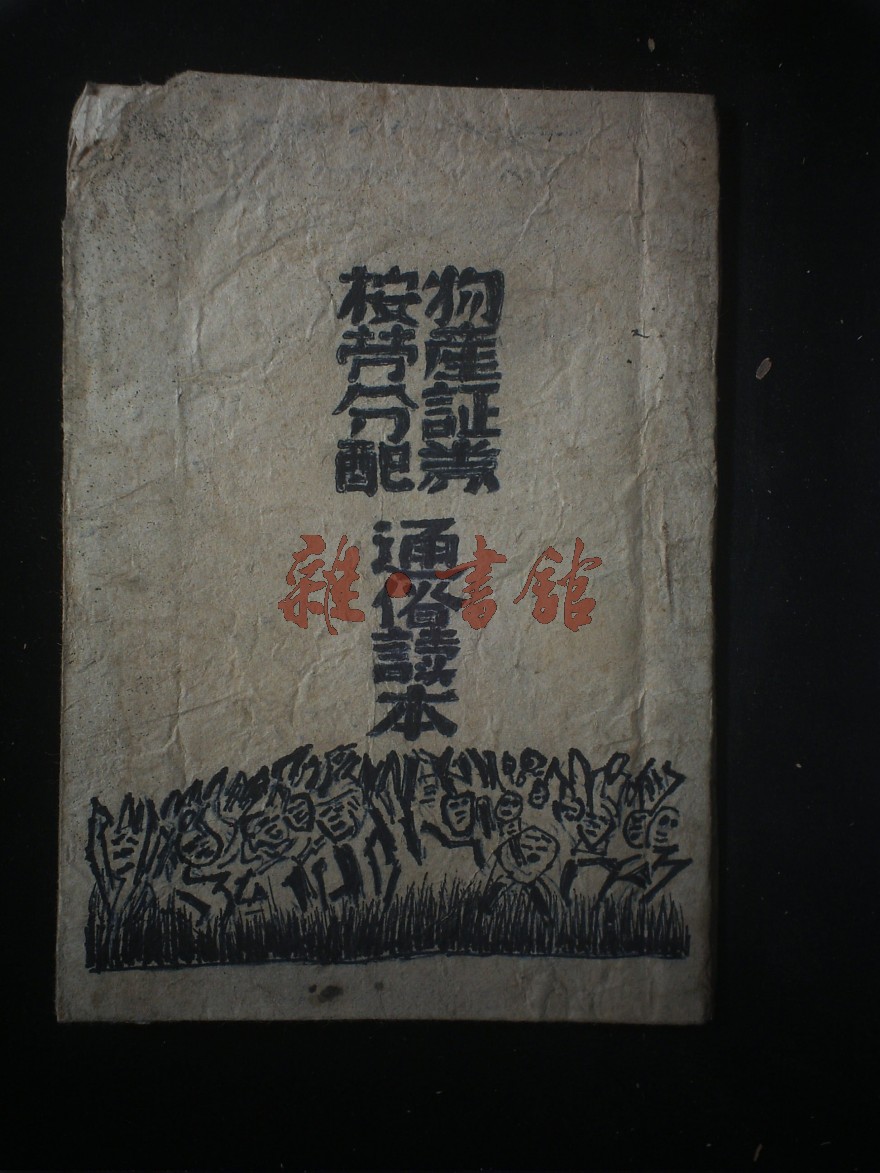 物產証券
桉劳分配
通俗讀本
雜·書館